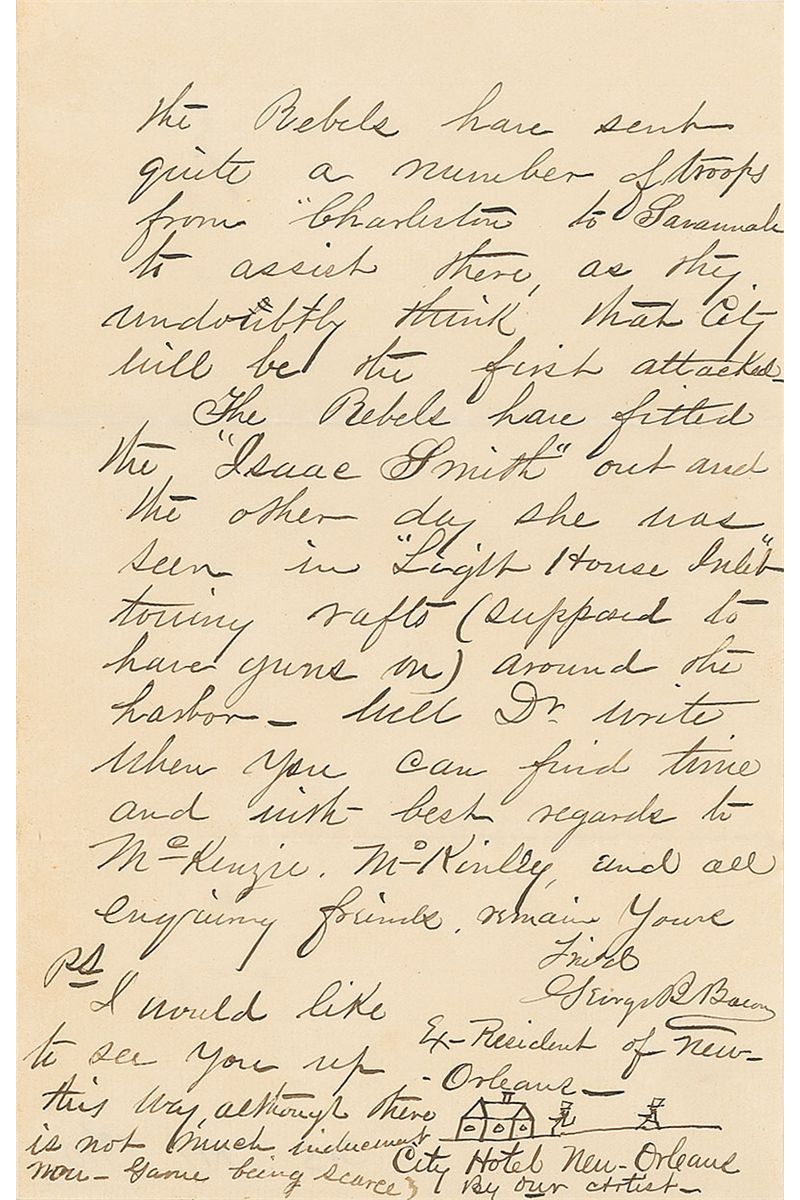 the Rebels have sent
quite a number of troops
from "Charleston to Savannah
to assist there, as they
undoubtly think that City
will be the first attacked-
The Rebels have fitted
the "Isaac Smith" out and
the other day she was
seen in "Ligth House Inlet"
towing rafts (supposed to
have guns on) around the
harbor - Well Dr. write
when you can find time
and with best regards to
McKenzie. McKinley and all
enquiring friends, remain Yours
Friend
George B Bacon
Ex-Resident of New-
Orleans -
PS
I would like
to see you up
this way, although there
is not much inducement
now - Game being scarce
City Hotel New-Orleans
By our Artist -